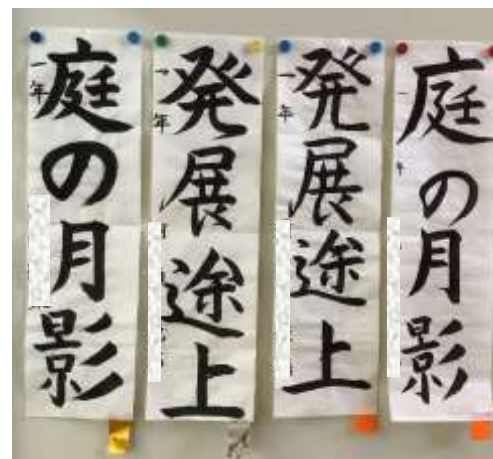 庭の月影
一年
発展途上
一年
発展途上
一年
庭の月影
一年